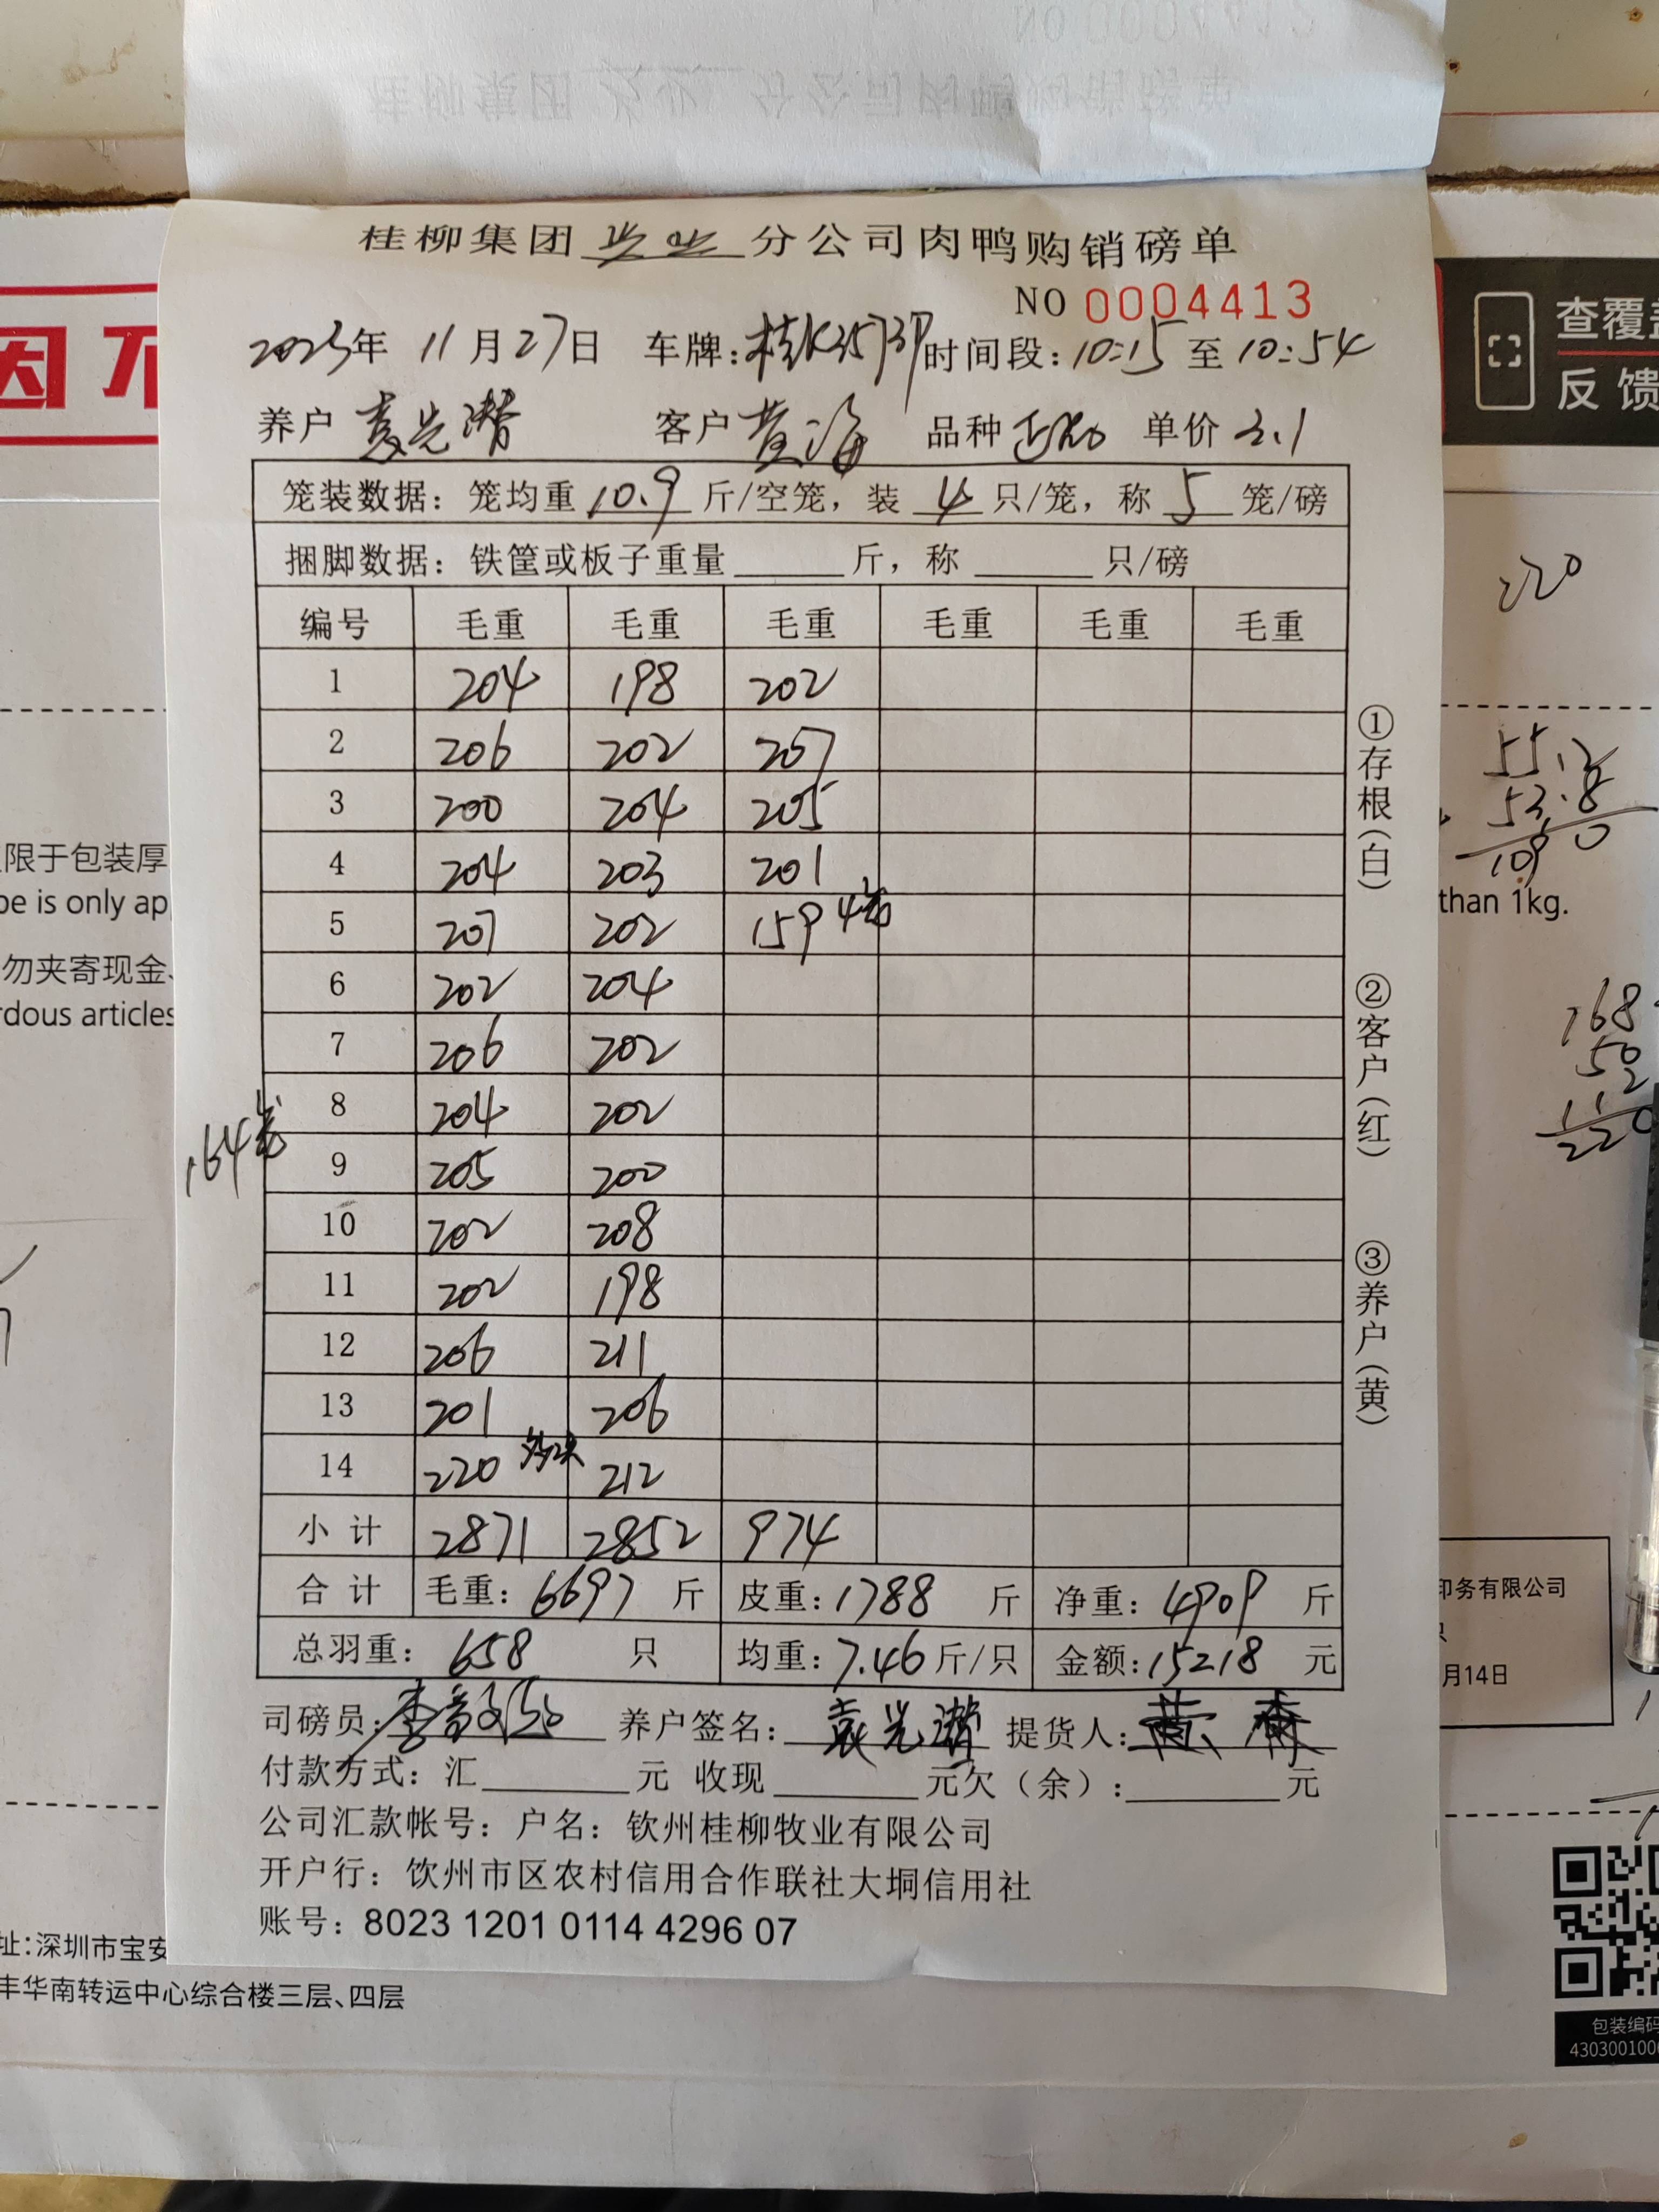 NO 0004412
桂柳集团 分公司肉鸭购销磅单
桂柳集团 分公司肉鸭购销磅单
NO 0004413
2023年 11月27日 车牌:桂K35737 时间段:10:15至10:54
养户 袁光潜 客户 黄海 品种 单价 3.1
笼装数据：笼均重10.9斤/空笼，装4只/笼，称5笼/磅
捆脚数据：铁筐或板子重量 斤，称 只/磅
编号 毛重 毛重 毛重 毛重 毛重 毛重
1 204 198 202
2 206 202 207
3 200 204 205
4 204 203 201
5 207 202 159 4笼
6 202 204
7 206 202
8 204 202
9 205 200
10 202 208
11 202 198
12 206 211
13 201 206
14 220 212
小计 2871 2852 974
合计 毛重：6697斤 皮重：1788斤 净重：4909斤
总羽重：658只 均重：7.46斤/只 金额：15218元
司磅员: 养户签名：袁光潜 提货人：黄
付款方式：汇 元 收现 元欠（余）： 元
公司汇款帐号：户名：钦州桂柳牧业有限公司
开户行：饮州市区农村信用合作联社大垌信用社
账号：8023 1201 0114 4296 07
164笼
①存根(白)
②客户(红)
③养户(黄)
因不
限于包装厚
pe is only ap
勿夹寄现金、
rdous articles
址:深圳市宝安
丰华南转运中心综合楼三层、四层
查覆盖
反馈
220
55.2
53.8
1090
than 1kg.
168
52
220
印务有限公司
月14日
包装编码
4303001000